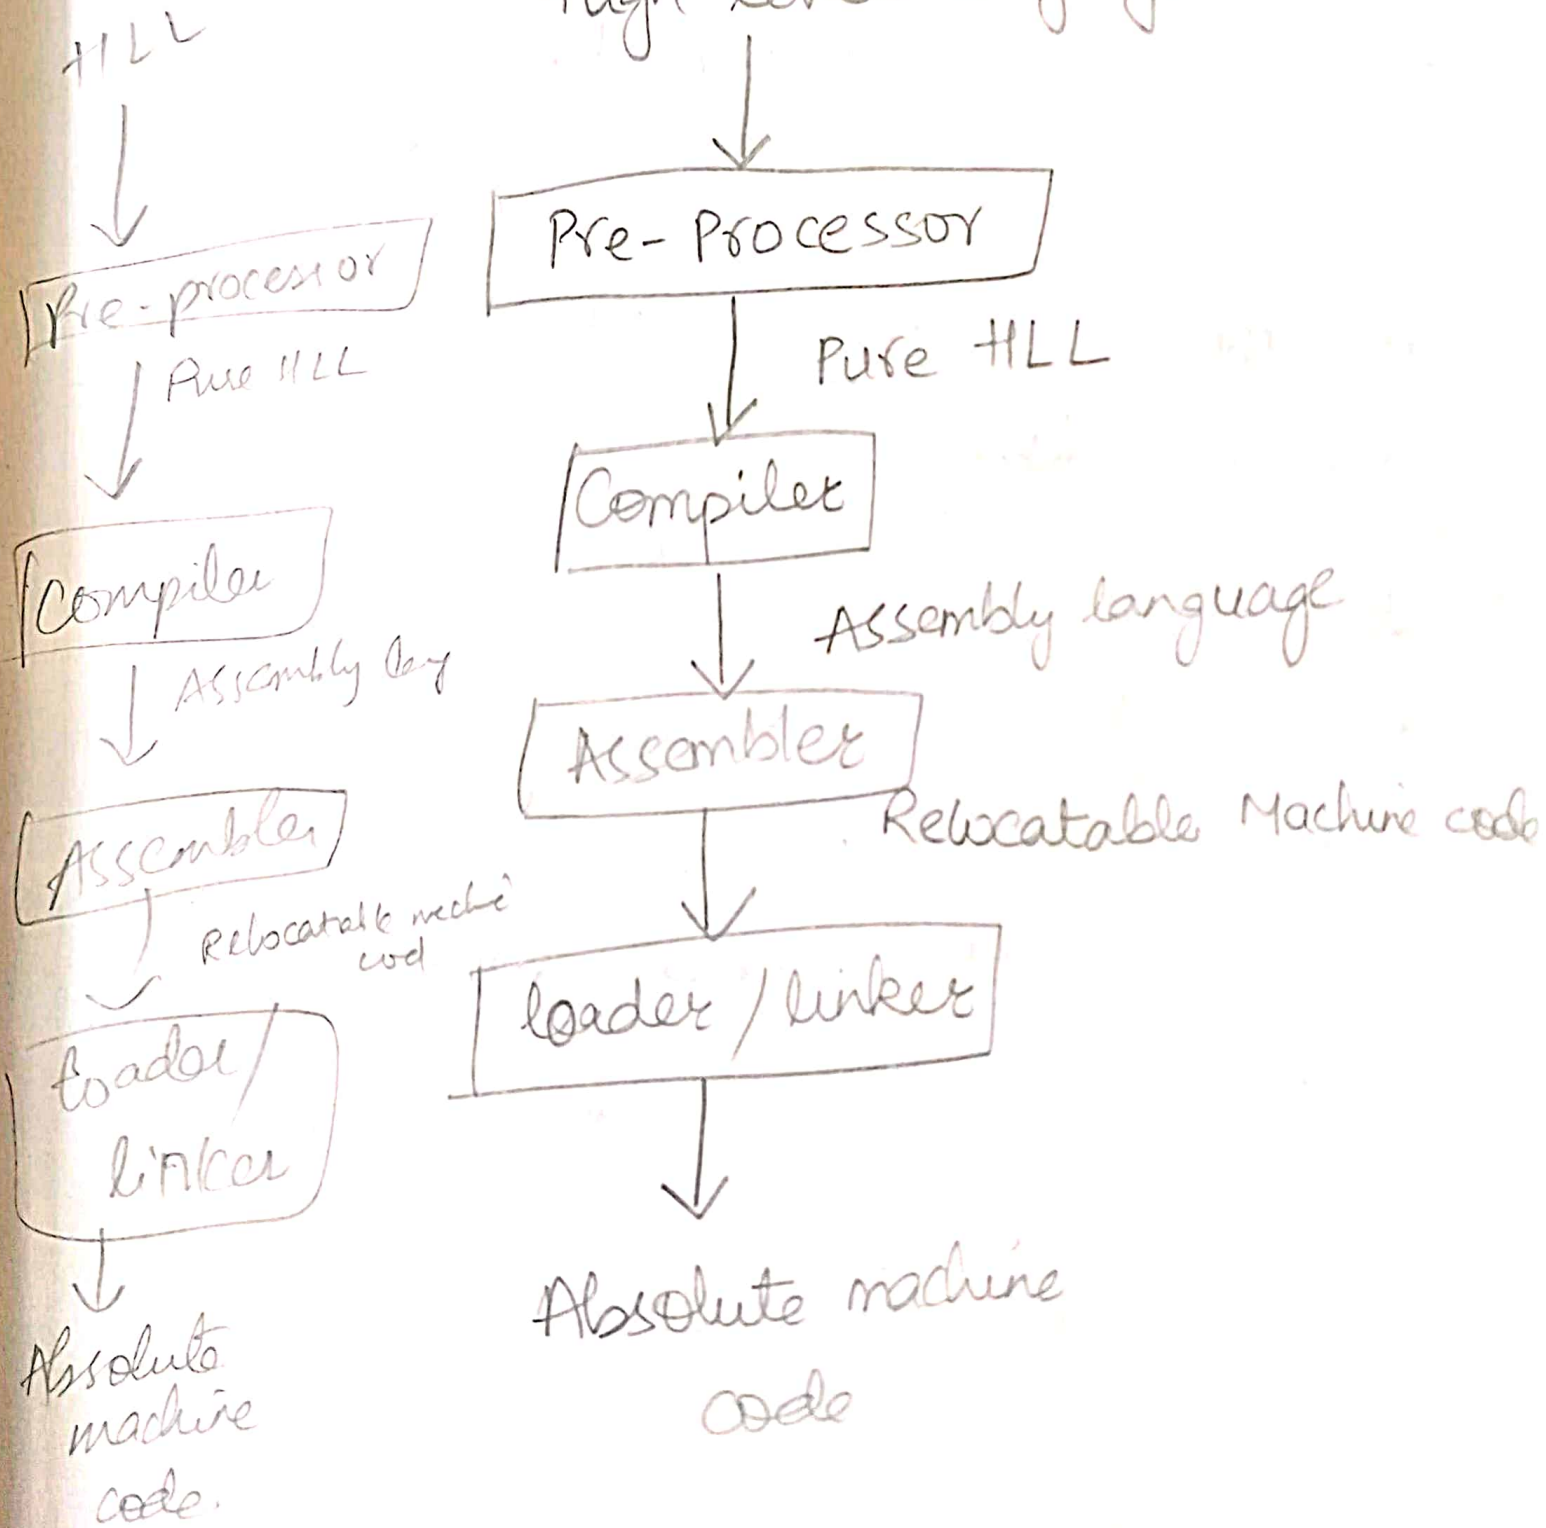 HLL
Pre-processor
Pure HLL
Compiler
Assembly
Assembler
Relocatable
Loader/
linker
Absolute
machine
code.
High
Pre-Processor
Pure HLL
Compiler
Assembly language
Assembler
Relocatable Machine code
loader/linker
Absolute machine
code